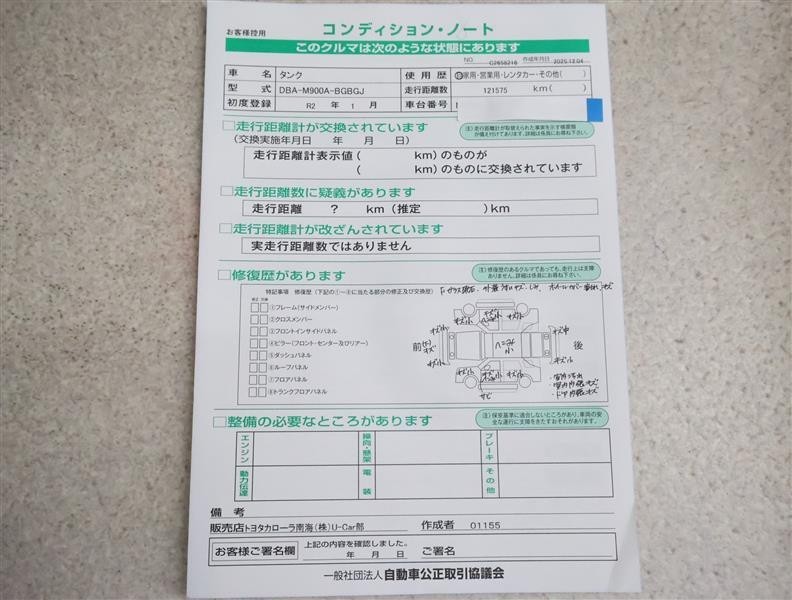 お客様控用
コンディション・ノート
このクルマは次のような状態にあります
NO. C2658216 作成年月日 2025.12.04
車名 タンク 使用歴 自家用・営業用・レンタカー・その他( )
型式 DBA-M900A-BGBGJ 走行距離数 121575 km( )
初度登録 R2 年 1 月 車台番号
□走行距離計が交換されています
(交換実施年月日 年 月 日)
注)走行距離計が取替えられた事実を示す横票簡
が備え付けてあります。詳細は係員にお尋ね下さい。
走行距離計表示値( km)のものが
( km)のものに交換されています
□走行距離数に疑義があります
走行距離 ? km(推定 )km
□走行距離計が改ざんされています
実走行距離数ではありません
□修復歴があります
注)修復歴のあるクルマであっても、走行上は支障
ありません。詳細は係員にお尋ね下さい。
特記事項 修復歴(下記の①~⑧に当たる部分の修正及び交換歴)
修正 交換
①フレーム(サイドメンバー)
②クロスメンバー
③フロントインサイドパネル
④ピラー(フロント・センター及びリアー)
⑤ダッシュパネル
⑥ルーフパネル
⑦フロアパネル
⑧トランクフロアパネル
Fガラス飛石、外装
キズ小
キズ小
キズ小
キズ小
キズ中
前 後
ヘコミ
小
キズ小
キズ小
キズ小
キズ小
サビ
・室内汚れ
・室内内張キズ
・ドア内張キズ
□整備の必要なところがあります
注)保安基準に適合しないところがあり、車両の安
全な運行に支障をきたすおそれがあります。
エンジン 操向・懸架 ブレーキ
動力伝達 電装 その他
備考
販売店 トヨタカローラ南海(株)U-Car部 作成者 01155
お客様ご署名欄 上記の内容を確認しました。
年 月 日 ご署名
一般社団法人 自動車公正取引協議会